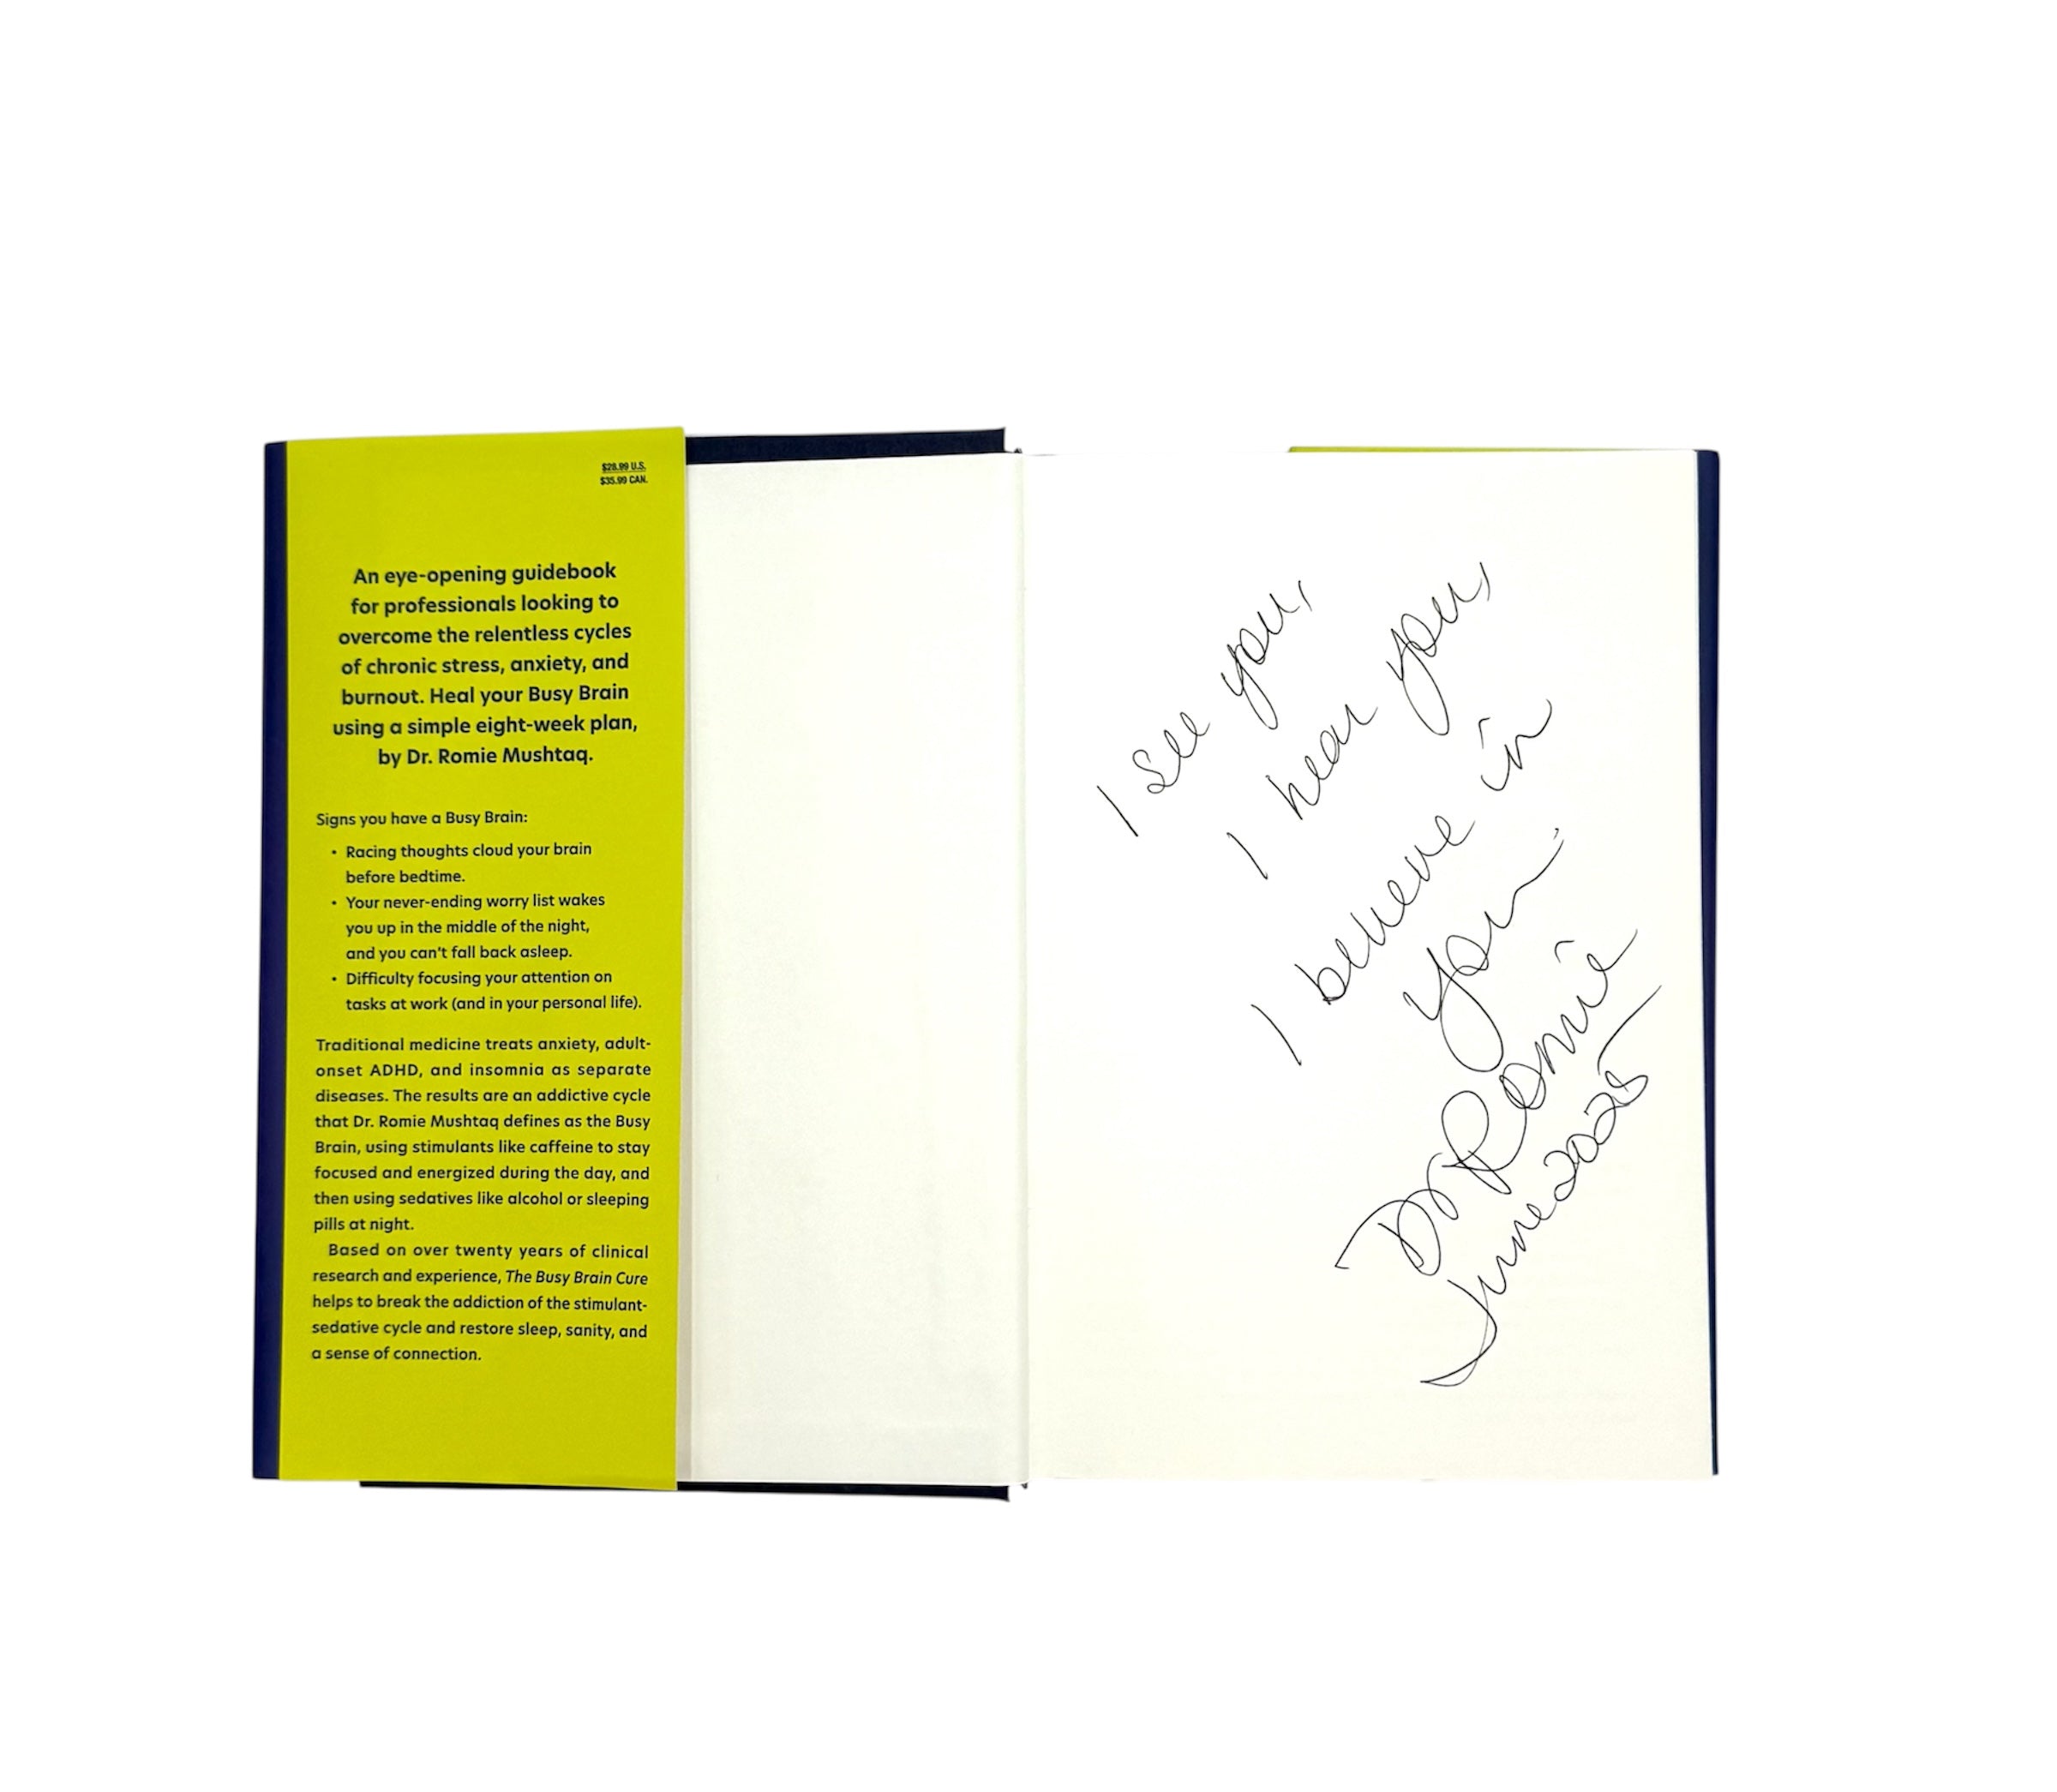 $28.99 U.S.
$35.99 CAN.
An eye-opening guidebook
for professionals looking to
overcome the relentless cycles
of chronic stress, anxiety, and
burnout. Heal your Busy Brain
using a simple eight-week plan,
by Dr. Romie Mushtaq.
Signs you have a Busy Brain:
• Racing thoughts cloud your brain
before bedtime.
• Your never-ending worry list wakes
you up in the middle of the night,
and you can't fall back asleep.
• Difficulty focusing your attention on
tasks at work (and in your personal life).
Traditional medicine treats anxiety, adult-
onset ADHD, and insomnia as separate
diseases. The results are an addictive cycle
that Dr. Romie Mushtaq defines as the Busy
Brain, using stimulants like caffeine to stay
focused and energized during the day, and
then using sedatives like alcohol or sleeping
pills at night.
Based on over twenty years of clinical
research and experience, The Busy Brain Cure
helps to break the addiction of the stimulant-
sedative cycle and restore sleep, sanity, and
a sense of connection.
I see you,
I hear you,
I believe in
you
Dr Romie
June 2025